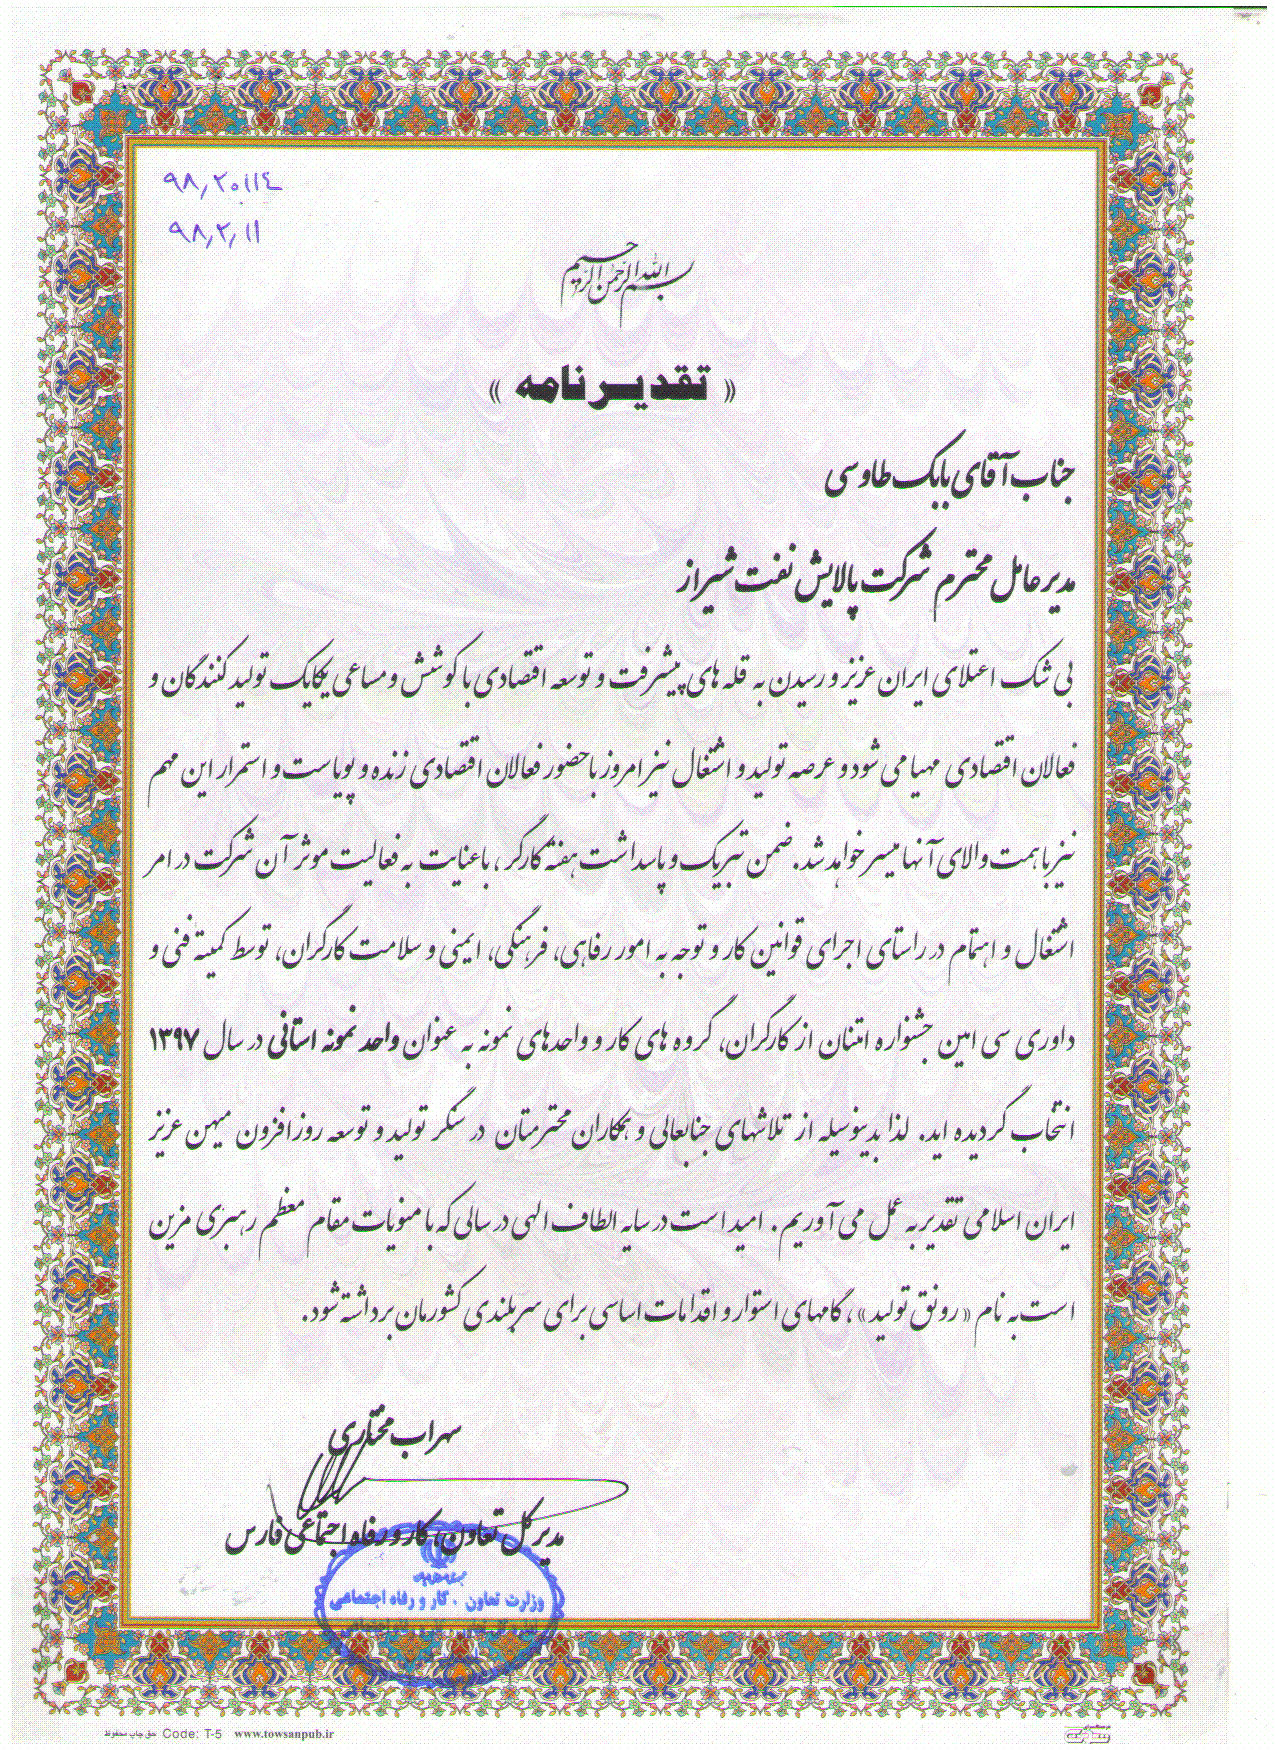 ۹۸٫۲۰۱۱۴
۹۸٫۲٫۱۱
بسم الله الرحمن الرحیم
« تقدیرنامه »
جناب آقای بابک طاوسی
مدیرعامل محترم شرکت پالایش نفت شیراز
بی شک اعتلای ایران عزیز و رسیدن به قله های پیشرفت و توسعه اقتصادی با کوشش و مساعی یکایک تولیدکنندگان و
فعالان اقتصادی مهیا می شود و عرصه تولید و اشتغال نیز امروز با حضور فعالان اقتصادی زنده و پویاست و استمرار این مهم
نیز با همت والای آنها میسر خواهد شد. ضمن تبریک و پاسداشت هفته کارگر، با عنایت به فعالیت موثر آن شرکت در امر
اشتغال و اهتمام در راستای اجرای قوانین کار و توجه به امور رفاهی، فرهنگی، ایمنی و سلامت کارگران، توسط کمیته فنی و
داوری سی امین جشنواره امتنان از کارگران، گروه های کار و واحدهای نمونه به عنوان واحد نمونه استانی در سال ۱۳۹۷
انتخاب گردیده اید. لذا بدینوسیله از تلاشهای جنابعالی و همکاران محترمتان در سنگر تولید و توسعه روزافزون میهن عزیز
ایران اسلامی تقدیر به عمل می آوریم. امید است در سایه الطاف الهی در سالی که با منویات مقام معظم رهبری مزین
است به نام «رونق تولید»، گامهای استوار و اقدامات اساسی برای سربلندی کشورمان برداشته شود.
سهراب مختاری
مدیر کل تعاون، کار و رفاه اجتماعی فارس
وزارت تعاون ، کار و رفاه اجتماعی
حق چاپ محفوظ Code: T-5 www.towsanpub.ir